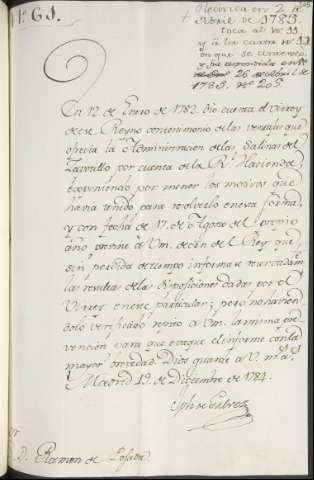 N.º 61.
Recivida en 2 de
Abril de 1785.
toca al nº 11
y á la carta nº 12
en que se
y fue respondida en
26 de Abril de
1785. Nº 205.
En 12 de Enero de 1782. dio cuenta el Virrey
de ese Reyno con testimonio de las ventajas que
ofrecia la Administracion de las Salinas del
Zapotillo por cuenta de la Rl. Hacienda,
exponiendo por menor los motivos que
havia tenido para resolverlo en esta forma,
y con fecha de 17. de Agosto del proprio
año previne á Vm. de orn del Rey que
sin perdida de tiempo informase
las resultas de las disposiciones dadas por el
Virrey en este particular; pero no havien
dolo verificado repito á Vm. la misma pre
vencion para que evaque el informe con la
mayor brevedad. Dios guarde á V. ms. as.
Madrid 12. de Diciembre de 1784.
Jph de Galvez
Sr. D. Ramon de Posada.